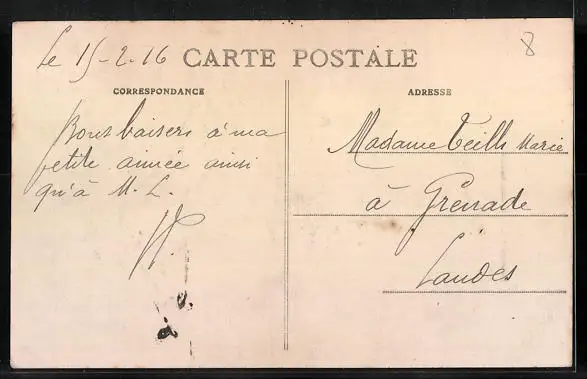 Le 15-2-16 CARTE POSTALE
8
CORRESPONDANCE
Bons baisers à ma
petite aimée ainsi
qu'à M. L.
ADRESSE
Madame Teilh Marie
à Grenade
Landes